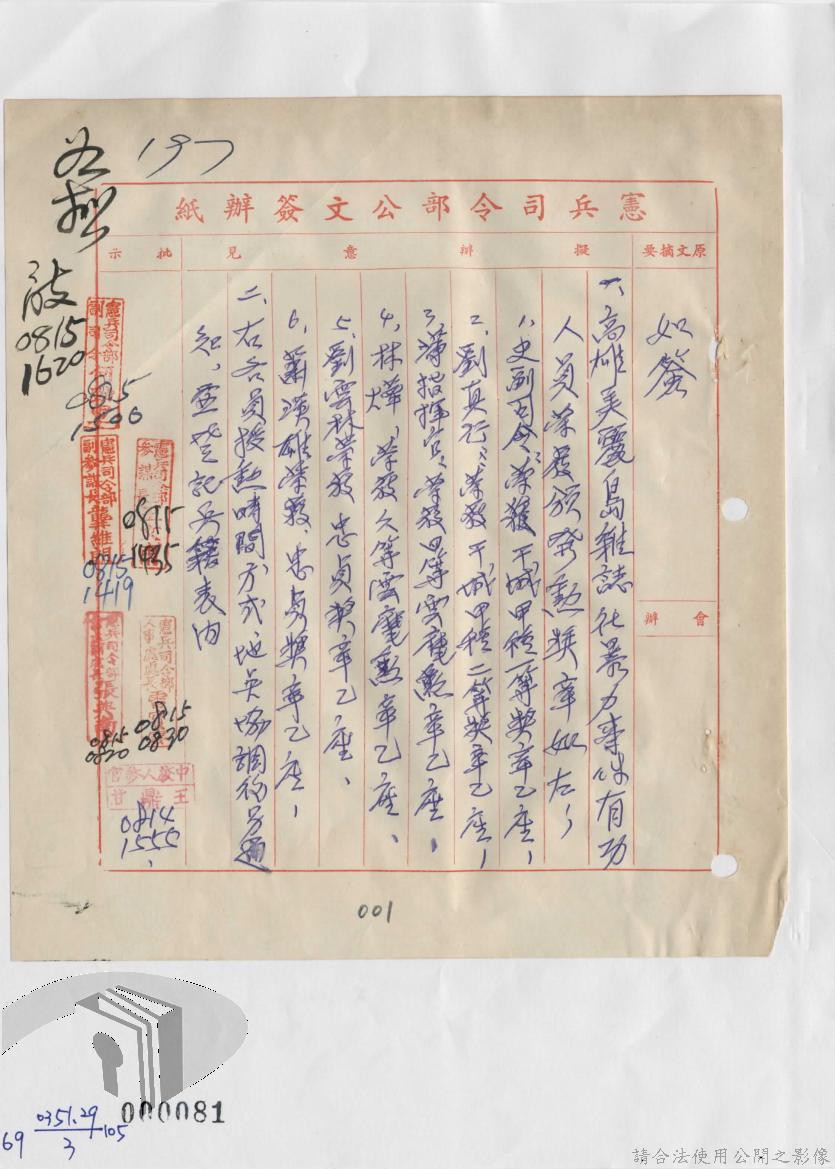 憲兵司令部公文簽辦紙
原文摘要
擬辦意見
批示
會辦
如簽
一、高雄美麗島雜誌社暴力事件有功
人員榮獲頒發勲獎章如左：
1、史副司令：榮獲干城甲種一等獎章乙座，
2、劉真行：榮獲干城甲種二等獎章乙座，
3、薄指揮官、榮獲四等雲麾勲章乙座，
4、林燁、榮獲六等雲麾勲章乙座、
5、劉雲林榮獲忠貞獎章乙座、
6、蕭瑛雄榮獲、忠貞獎章乙座，
二、右各員授勲時間方式地點協調後另通
知，並登記兵籍表內
0815
1620
憲兵司令部
0815
1500
憲兵司令部
副參謀長
0815
1419
憲兵司令部
參謀長
0815
1435
憲兵司令部
0815
0820
憲兵司令部
人事處處長
0815
0830
中校人參官
王鼎甘
0814
1555
001
000081
0351.29
3
105
69
請合法使用公開之影像